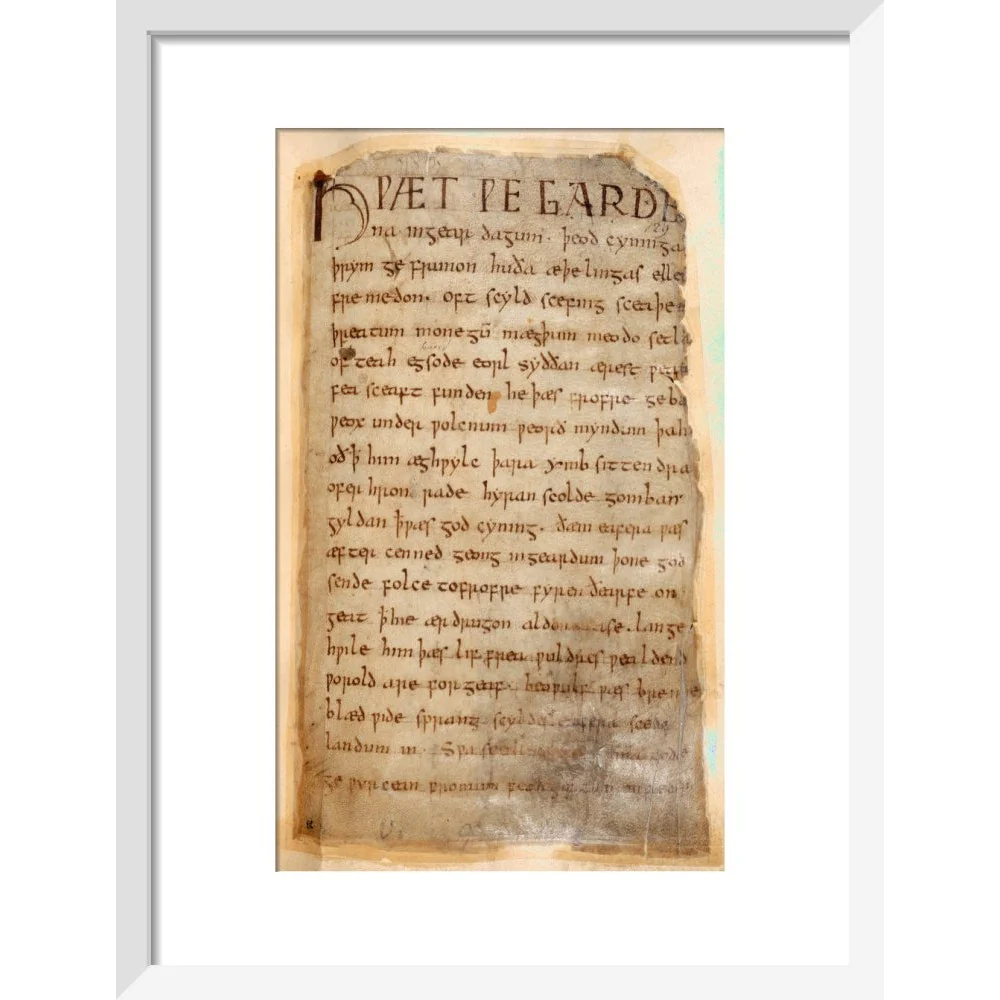 HǷÆT ǷE GARDE
na in gear dagum. þeod cyninga
þrym ge frunon huða æþelingas elle
fre medon. oft scyld scefing sceaþe
þreatum monegū mægþum meodo setla
of teah egsode eorl syððan ærest ƿear
fea sceaft funden he þæs frofre geba
ƿeox under ƿolcnum ƿeorð myndum þah
oð ꝥ him æghƿylc þara ymb sittendra
ofer hron rade hyran scolde gomban
gyldan ꝥ ƿæs god cyning. ðæm eafera ƿæs
æfter cenned geong in geardum þone god
sende folce to frofre fyren ðearfe on
geat ꝥ hie ær drugon aldor ase. lange
hƿile him þæs lif frea ƿuldres ƿealdend
ƿorold are for geaf. beoƿulf ƿæs breme
blæd ƿide sprang scyldes eafera scede
landum in. Sƿa sceal
ge ƿyrcean fromum feoh giftum
129